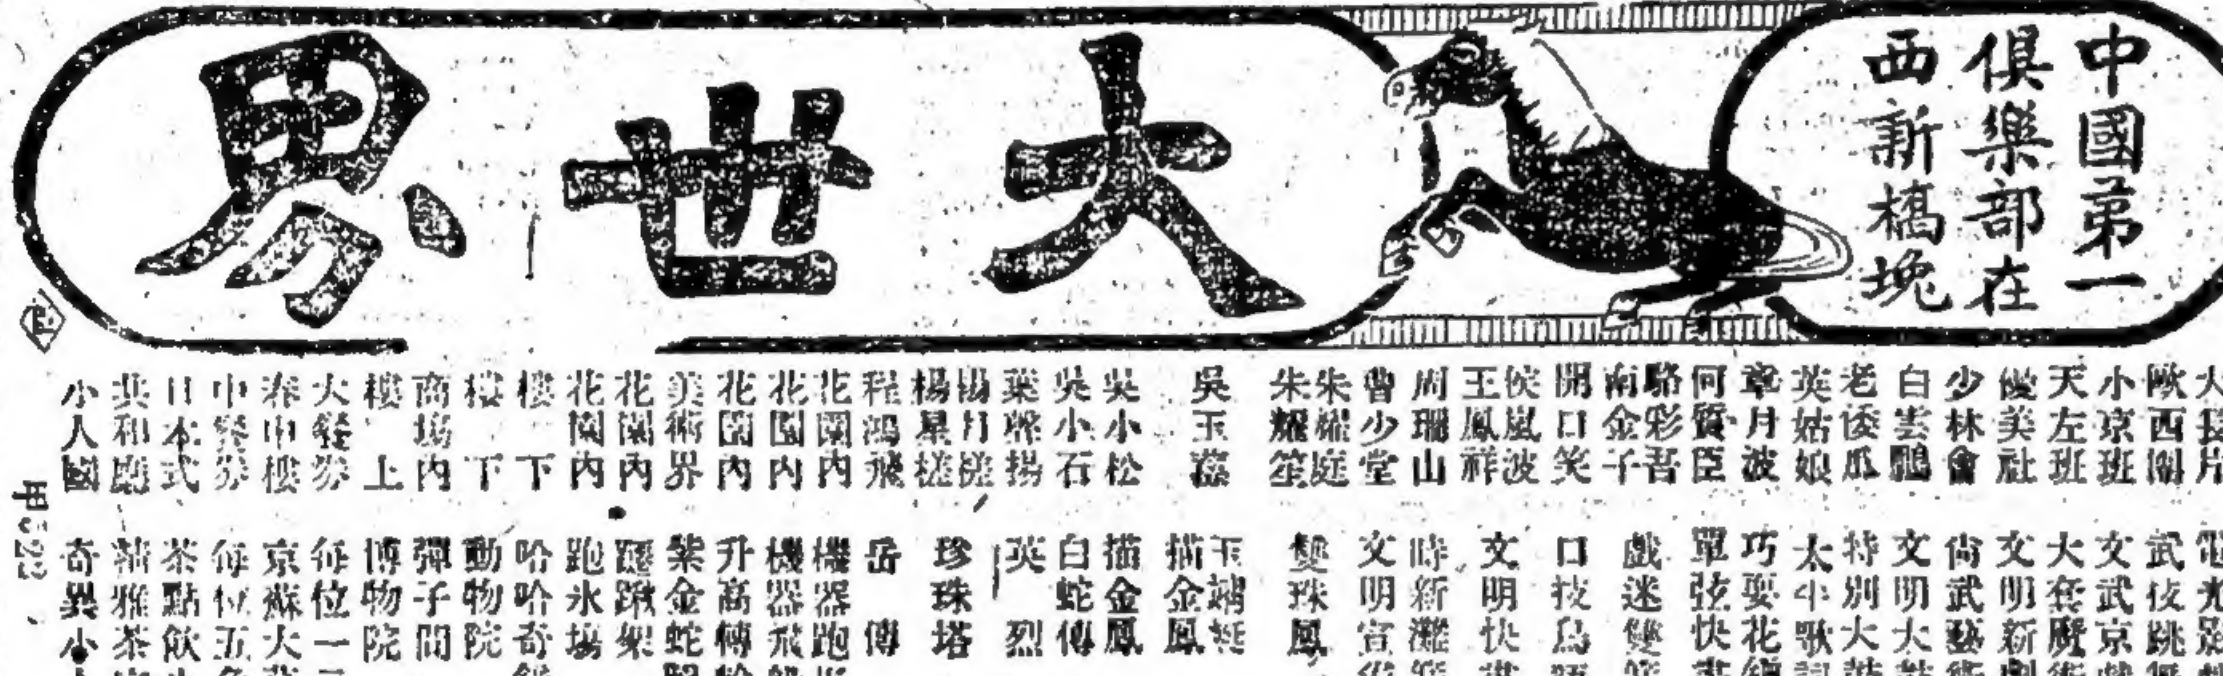 中國第一
俱樂部在
西新橋堍
大世界
大長片
歐西團
小京班
天左班
優美社
少林會
白雲鵬
老倭瓜
英姑娘
章月波
何質臣
駱彩吾
南金子
開口笑
侯嵐波
王鳳祥
周珊山
曹少堂
朱耀庭
朱耀笙
吳玉蓀
吳小松
吳小石
葉聲揚
楊月槎
楊星槎
程鴻飛
花園內
花園內
花園內
美術界
花園內
花園內
樓下
樓下
商場內
樓上
大餐券
春申樓
中餐券
日本式
共和廳
小人國
武技跳
文武京
大套魔
文明新
尚武藝
文明大
特別大
太平歌
巧耍花
單弦快
戲迷雙
口技鳥
文明快
時新灘
文明宣
雙珠鳳
玉蜻蜓
描金鳳
描金鳳
白蛇傳
英烈
珍珠塔
岳傳
機器跑
機器飛
升高轉
紫金蛇
鞦韆架
跑氷場
哈哈奇
動物院
彈子間
博物院
每位一
京蘇大
每位五
茶點飲
精雅茶
奇異小